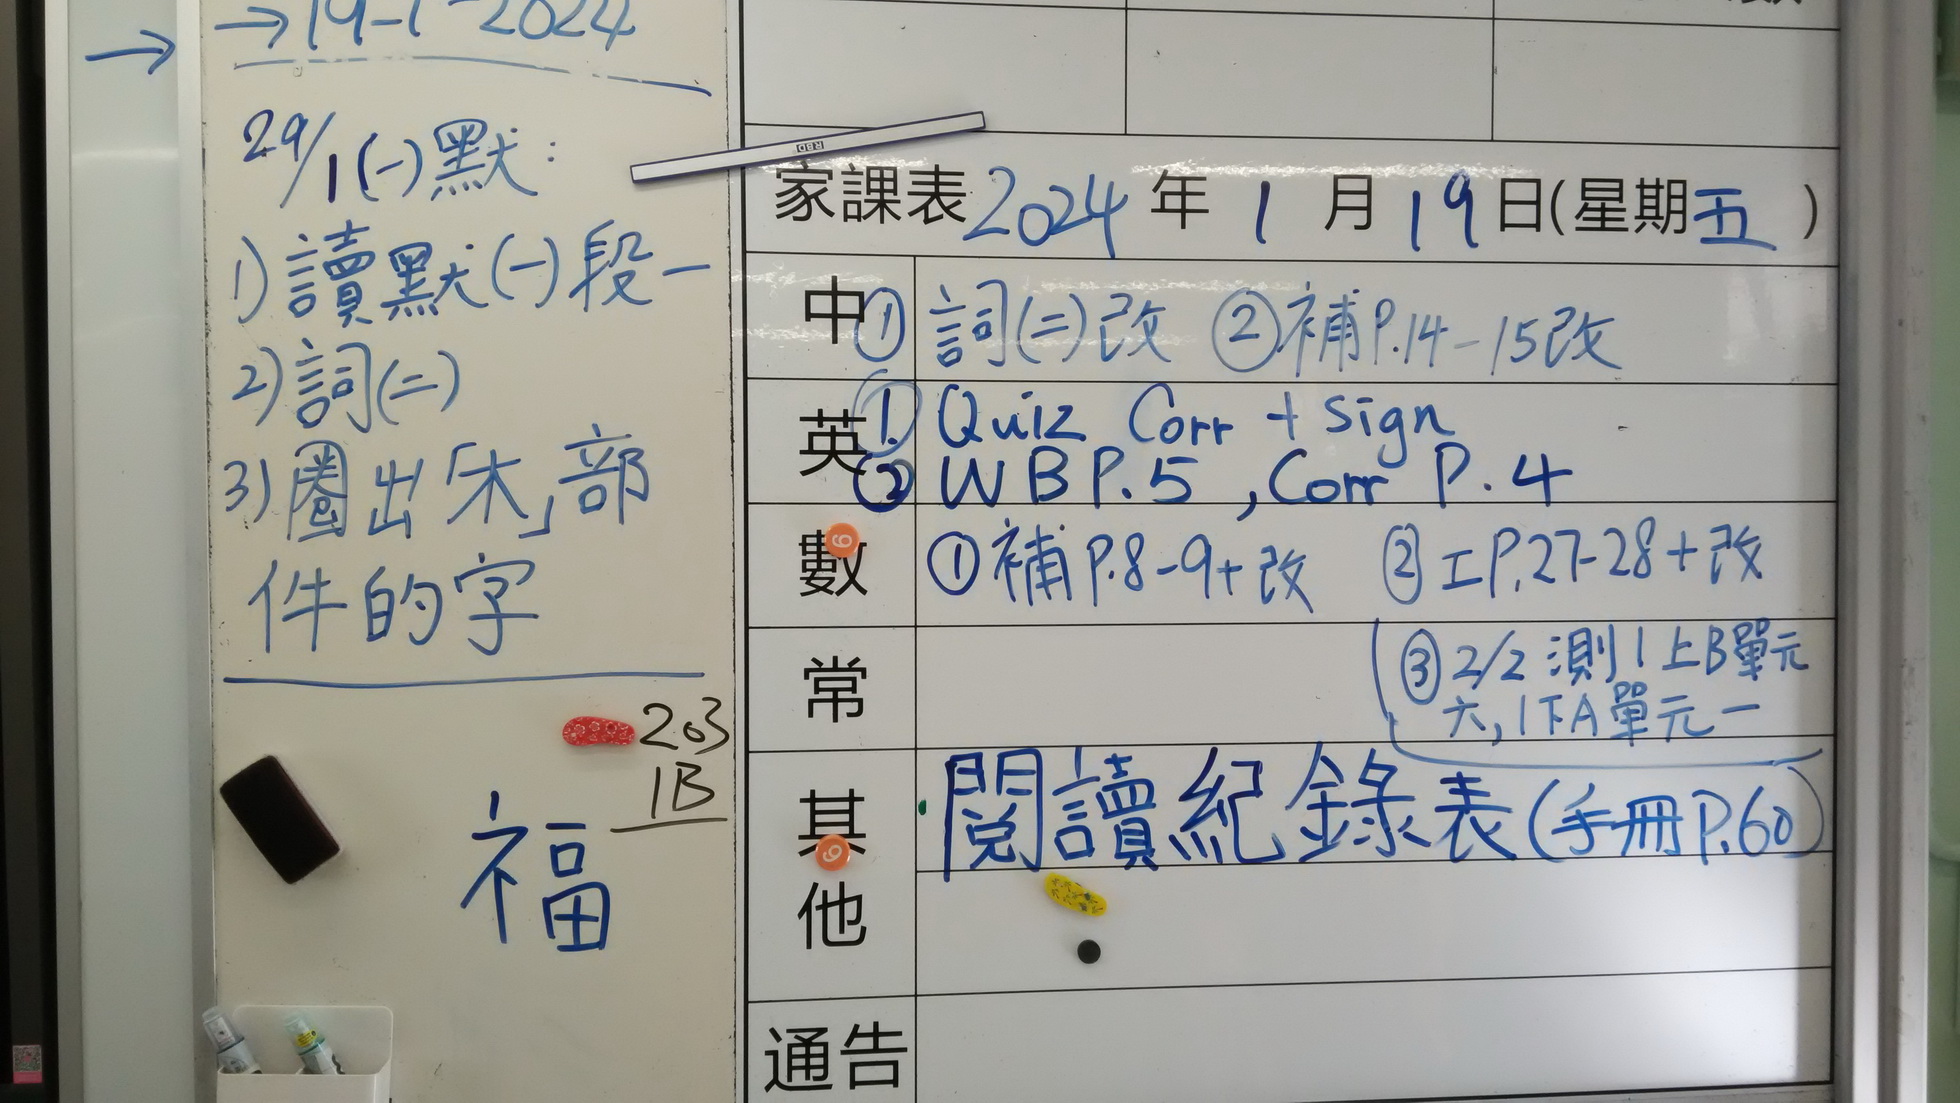 →19-1-2024
→
29/1(一)默:
1)讀默(一)段一
2)詞(二)
3)圈出「木」部
件的字
203
1B
福
家課表2024年1月19日(星期五)
中①詞(二)改 ②補P.14-15改
英①Quiz Corr + sign
②WB P.5, Corr P.4
數①補P.8-9+改 ②工P.27-28+改
常
③2/2 測1上B單元
六,1下A單元一
其他
閱讀紀錄表(手冊P.60)
通告